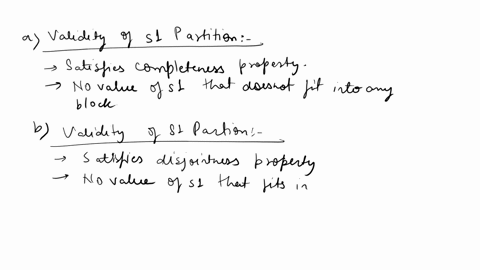 a) Validity of S1 Partition:-
→ Satisfies completeness property.
→ No value of S1 that doesnot fit into any
block
b) Validity of S1 Partion:-
→ Satisfies disjointness property
→ No value of S1 that fits in